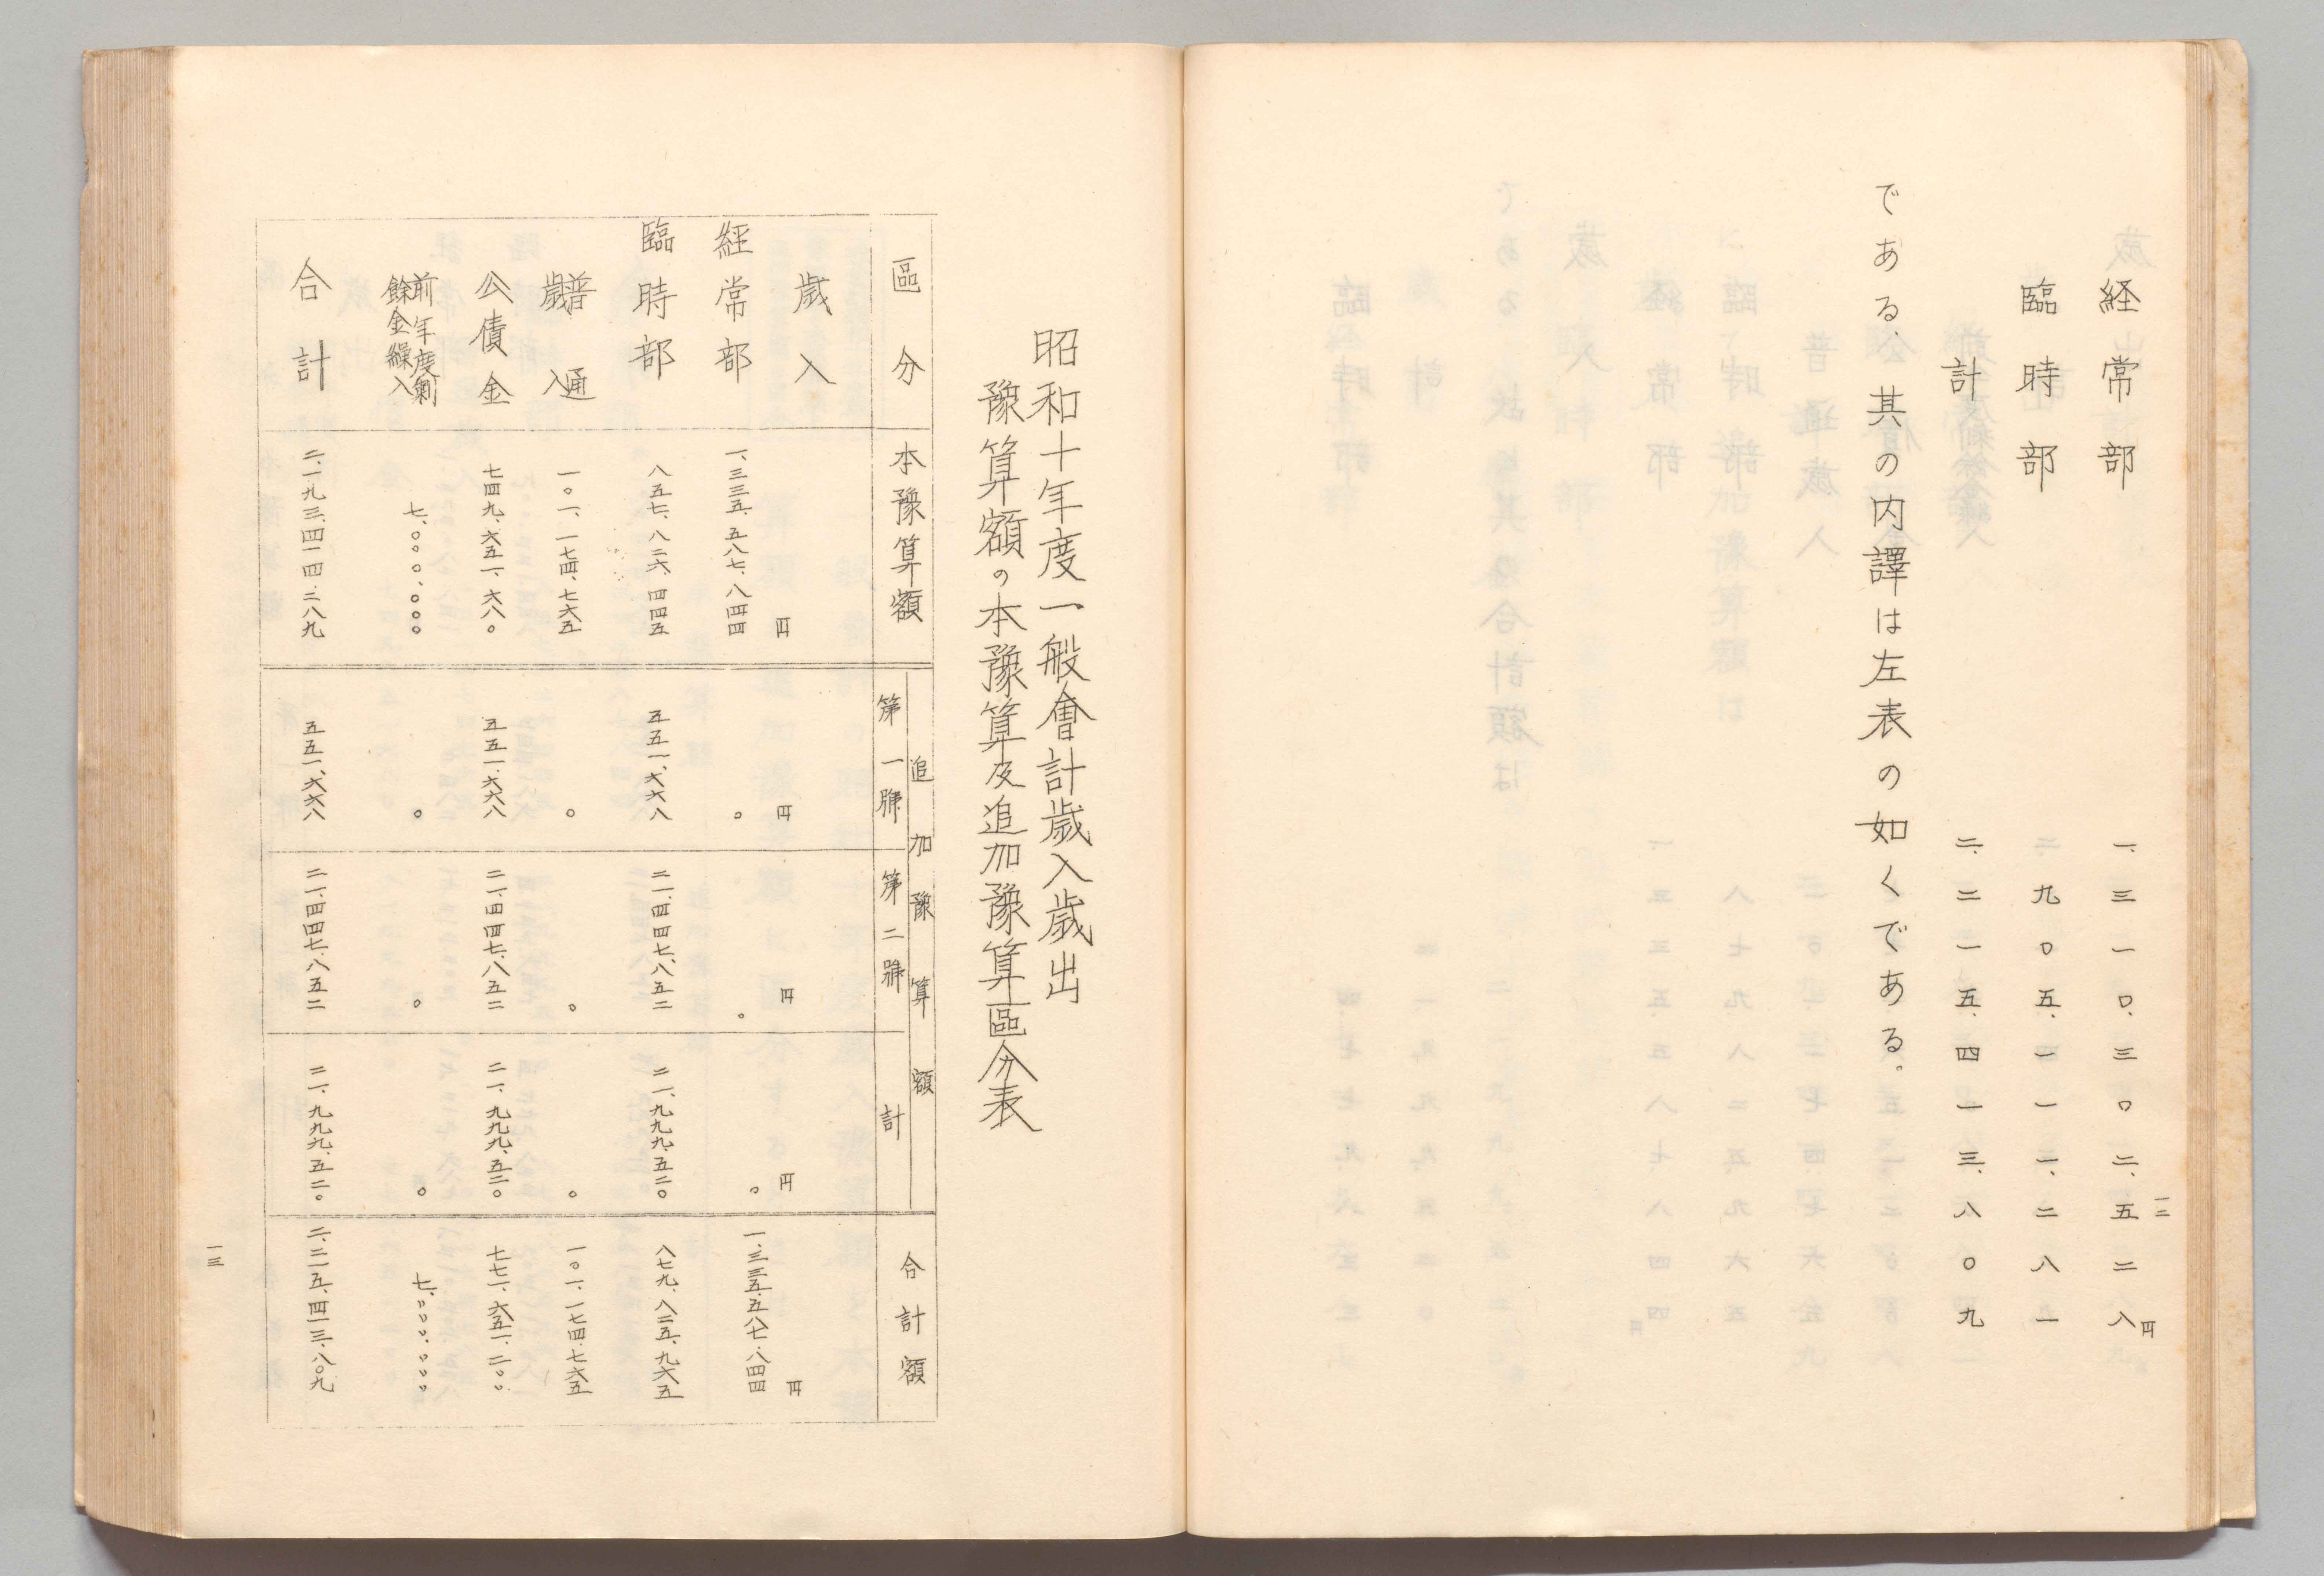 一二
円
経常部 一、三一〇、三〇二、五二八
臨時部 九〇五、一一一、二八一
計 二、二一五、四一三、八〇九
である、其の内譯は左表の如くである。
昭和十年度一般會計歳入歳出
豫算額の本豫算及追加豫算區分表
區分 本豫算額 追加豫算額 第一號 第二號 計 合計額
歳入 円 円 円 円 円
経常部 一、三三五、五八七、八四四 〇 〇 〇 一、三三五、五八七、八四四
臨時部 八五七、八二六、四四五 五五一、六六八 二一、四四七、八五二 二一、九九九、五二〇 八七九、八二五、九六五
普通歳入 一〇一、一七四、七六五 〇 〇 〇 一〇一、一七四、七六五
公債金 七四九、六五一、六八〇 五五一、六六八 二一、四四七、八五二 二一、九九九、五二〇 七七一、六五一、二〇〇
前年度剰餘金繰入 七、〇〇〇、〇〇〇 〇 〇 〇 七、〇〇〇、〇〇〇
合計 二、一九三、四一四、二八九 五五一、六六八 二一、四四七、八五二 二一、九九九、五二〇 二、二一五、四一三、八〇九
一三